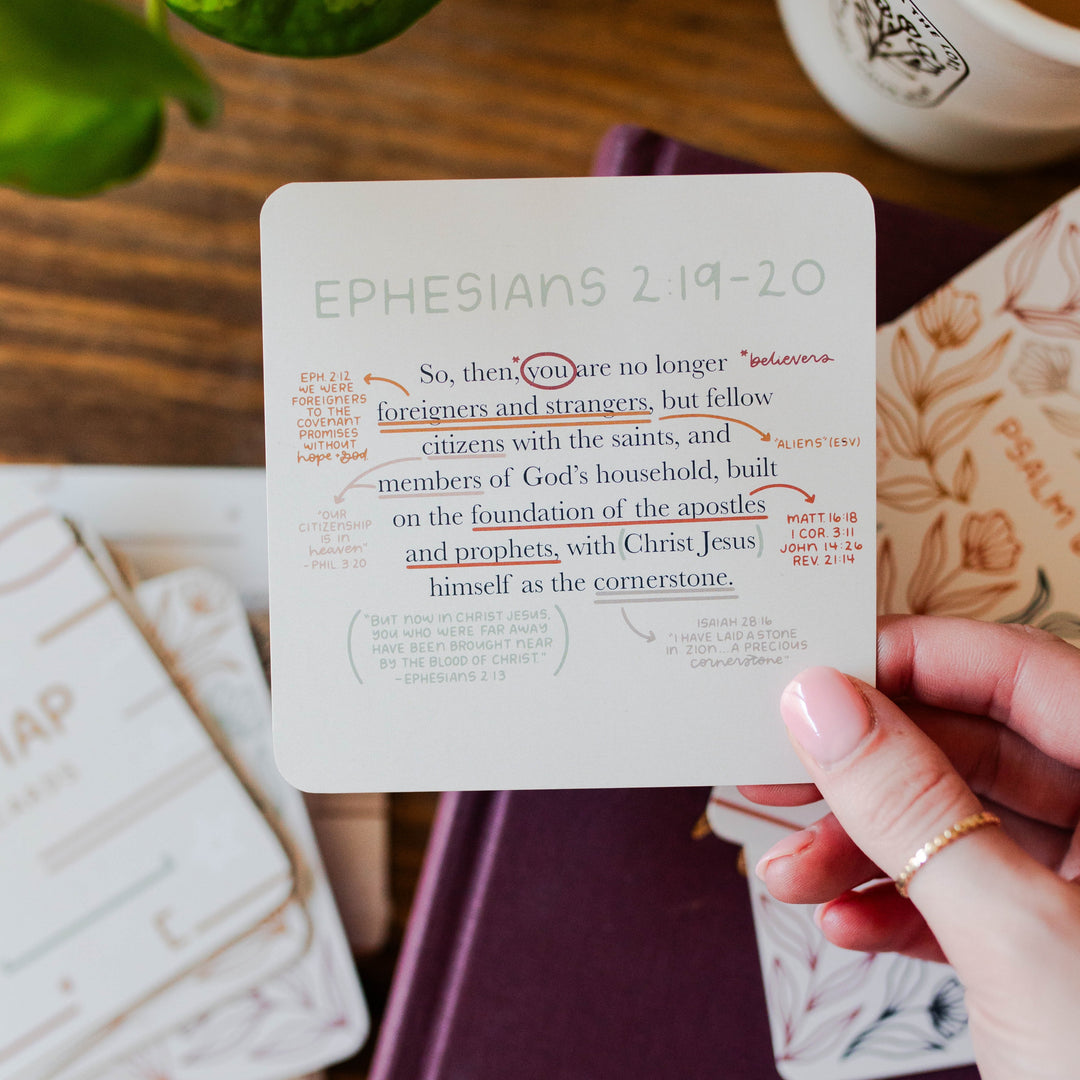 EPHESIANS 2:19-20
So, then, *you are no longer
*believers
foreigners and strangers, but fellow
citizens with the saints, and
members of God's household, built
on the foundation of the apostles
and prophets, with (Christ Jesus)
himself as the cornerstone.
EPH. 2:12
WE WERE
FOREIGNERS
TO THE
COVENANT
PROMISES
WITHOUT
hope + God.
"ALIENS" (ESV)
"OUR
CITIZENSHIP
IS IN
heaven"
- PHIL. 3:20
MATT. 16:18
1 COR. 3:11
JOHN 14:26
REV. 21:14
("BUT NOW IN CHRIST JESUS,
YOU WHO WERE FAR AWAY
HAVE BEEN BROUGHT NEAR
BY THE BLOOD OF CHRIST."
- EPHESIANS 2:13)
ISAIAH 28:16
"I HAVE LAID A STONE
IN ZION...A PRECIOUS
cornerstone"
PSALM